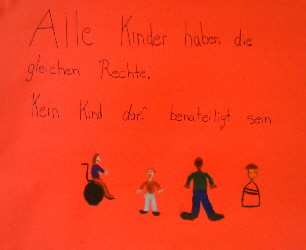 Alle Kinder haben die
gleichen Rechte.
Kein Kind darf benateiligt sein